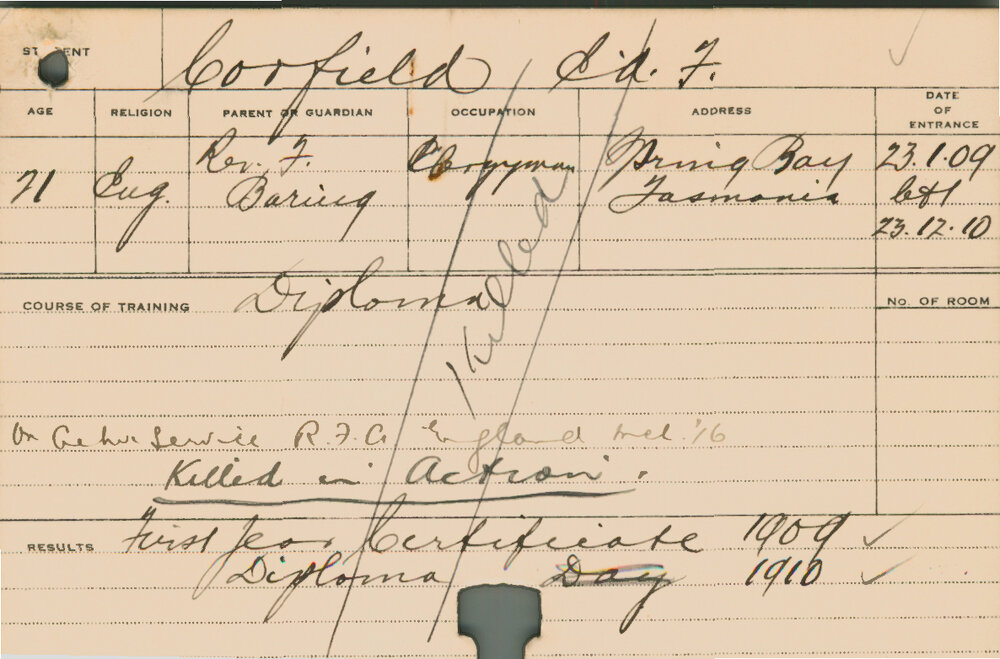 STUDENT Corfield Ed. F.
AGE RELIGION PARENT OR GUARDIAN OCCUPATION ADDRESS DATE OF ENTRANCE
Rev. F. Clergyman Spring Bay 23.1.09
21 Eng. Baring Tasmania left
23.12.10
COURSE OF TRAINING Diploma No. OF ROOM
Killed
On Active Service R.F.A. England Mch. '16
Killed in Action.
RESULTS First Year Certificate 1909 ✓
Diploma Day 1910 ✓